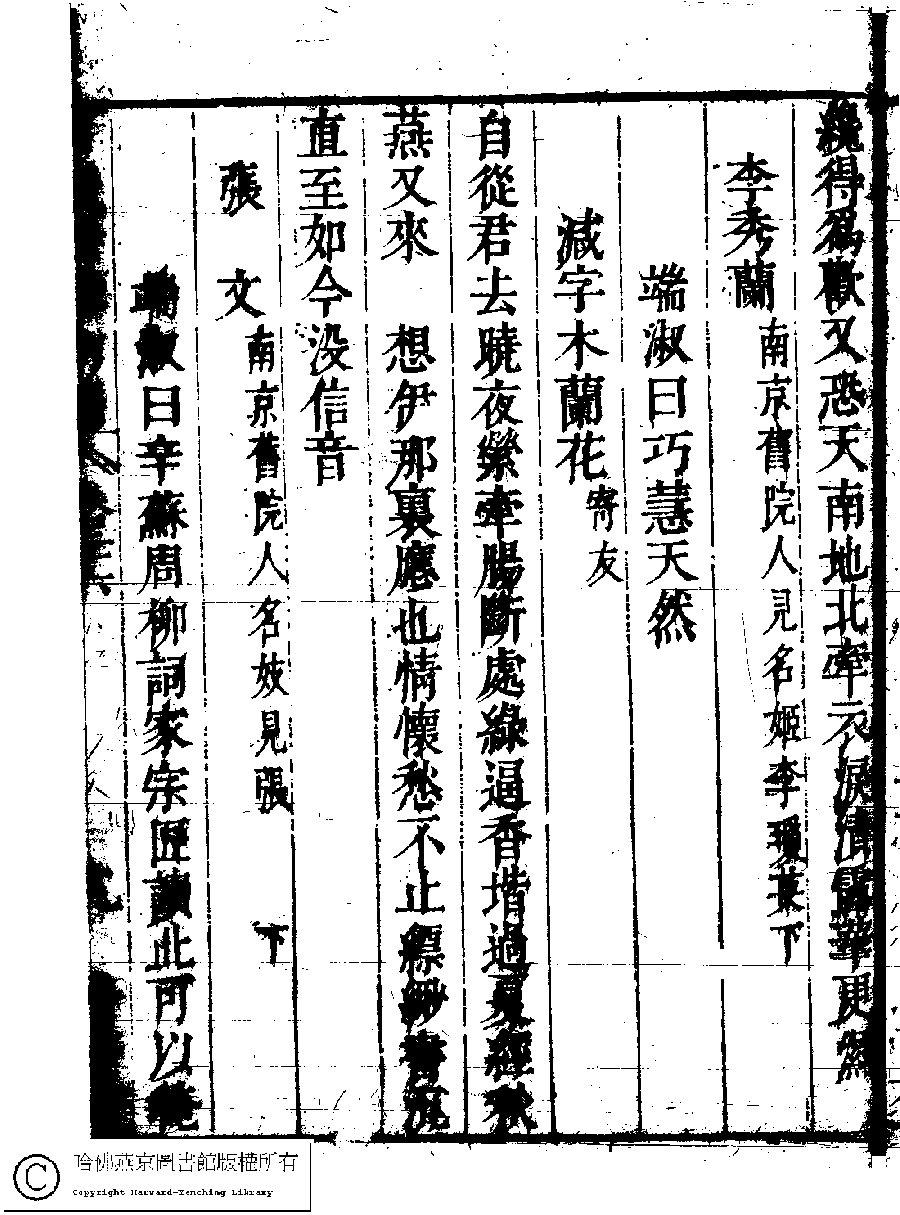 纔得爲歡又恐天南地北牽衣淚濆露華更無
李秀蘭南京舊院人見名姬李瓊英下
端淑曰巧慧天然
減字木蘭花寄友
自從君去曉夜縈牽腸斷處綠逼香堦過夏經秋
燕又來 想伊那裏應也情懷愁不止縹緲書沉
直至如今没信音
張 文南京舊院人名妓見張 下
端淑曰辛蘇周柳詞家宗匠讀此可以
哈佛燕京圖書館版權所有
Copyright Harvard-Yenching Library